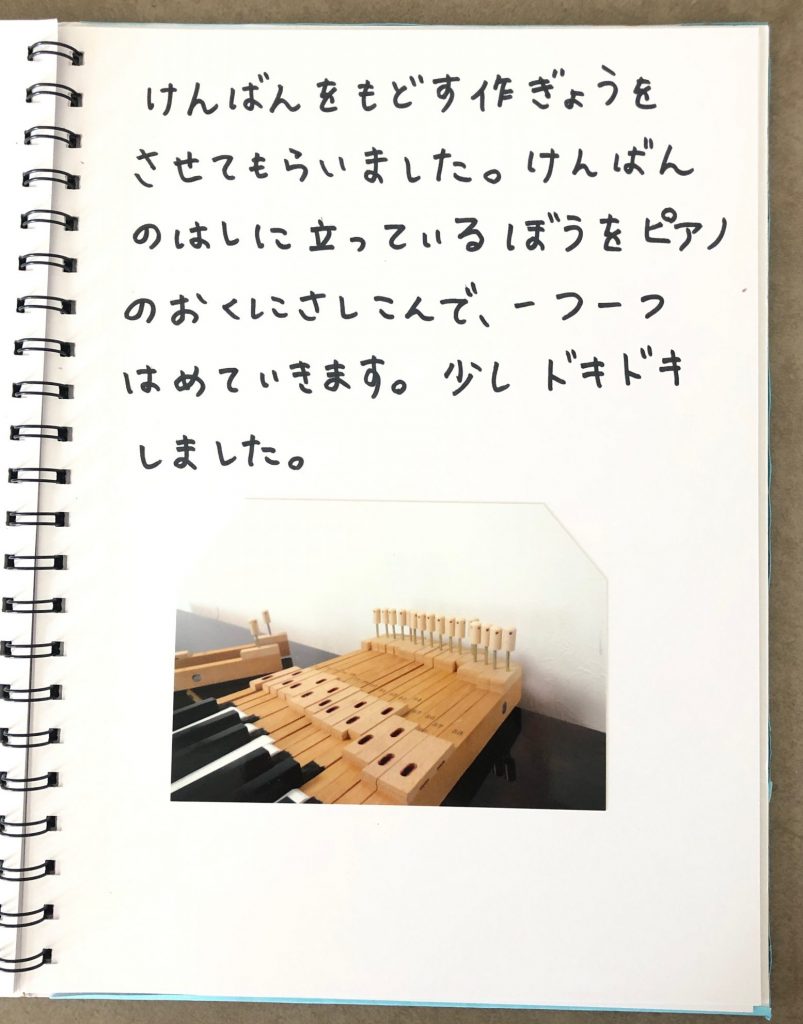 けんばんをもどす作ぎょうを
させてもらいました。けんばん
のはしに立っているぼうをピアノ
のおくにさしこんで、一つ一つ
はめていきます。少しドキドキ
しました。